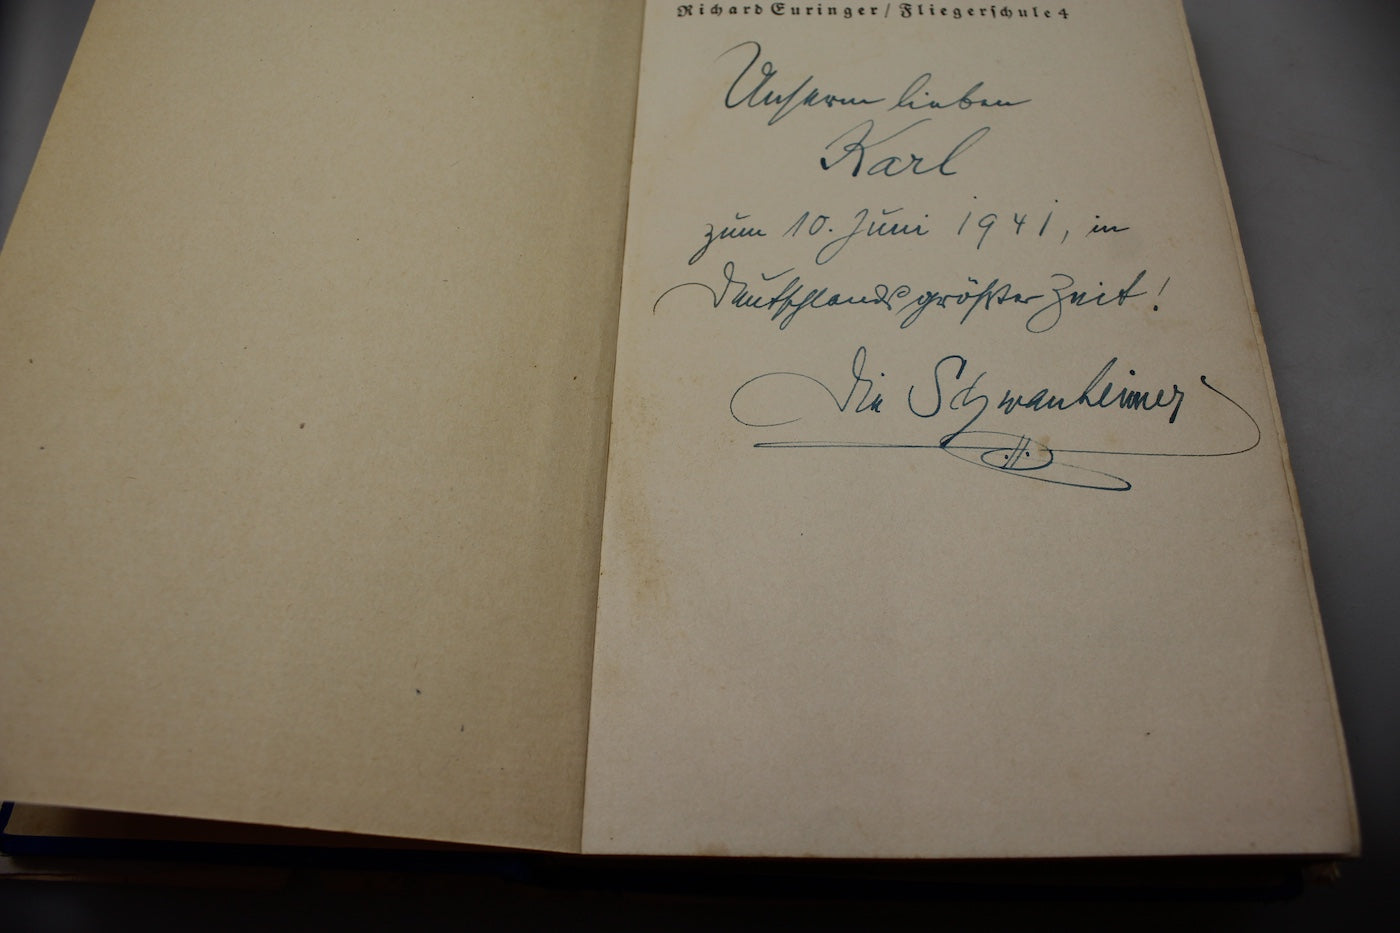 Richard Euringer / Fliegerschule 4
Unserm lieben
Karl
zum 10. Juni 1941, in
Deutschlands größter Zeit!
Die Schwanheimer